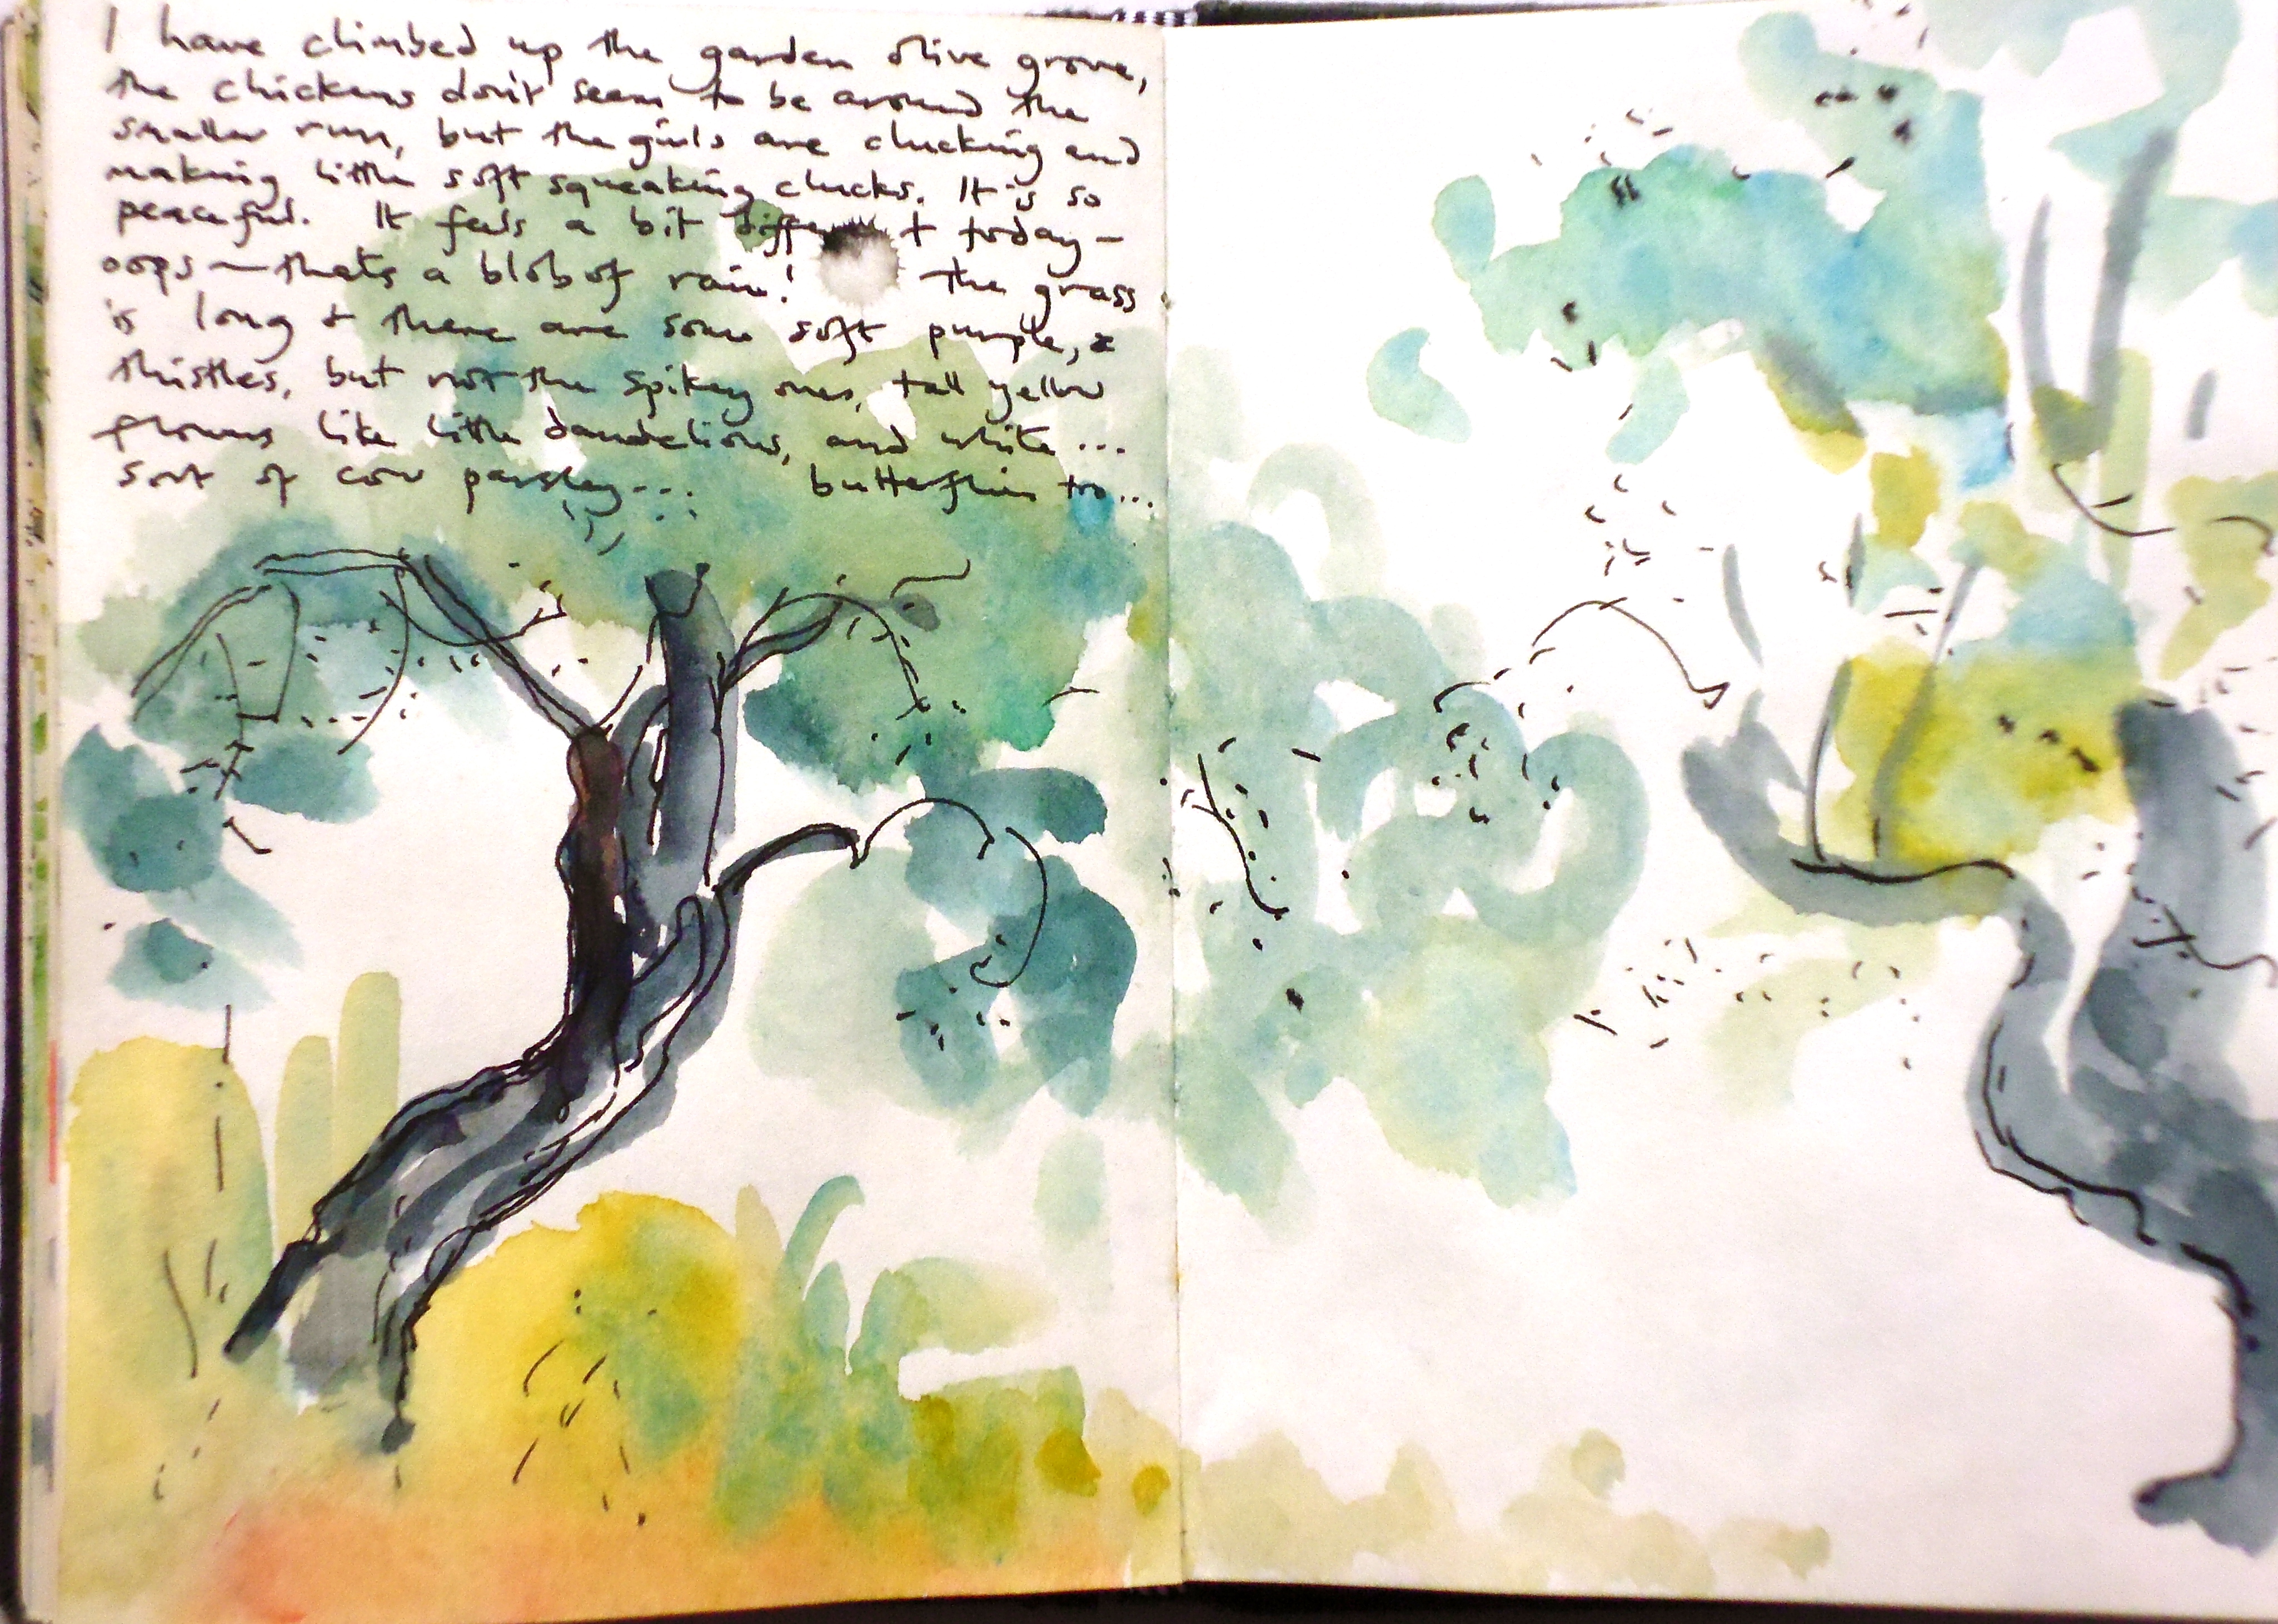 I have climbed up the garden olive grove,
the chickens don't seem to be around the
smaller run, but the girls are clucking and
making little soft squeaking clucks. It is so
peaceful. It feels a bit different today —
oops — thats a blob of rain! the grass
is long & there are some soft purple,
thistles, but not the spikey ones, tall yellow
flowers like little dandelions, and white...
sort of cow parsley... butterflies too...